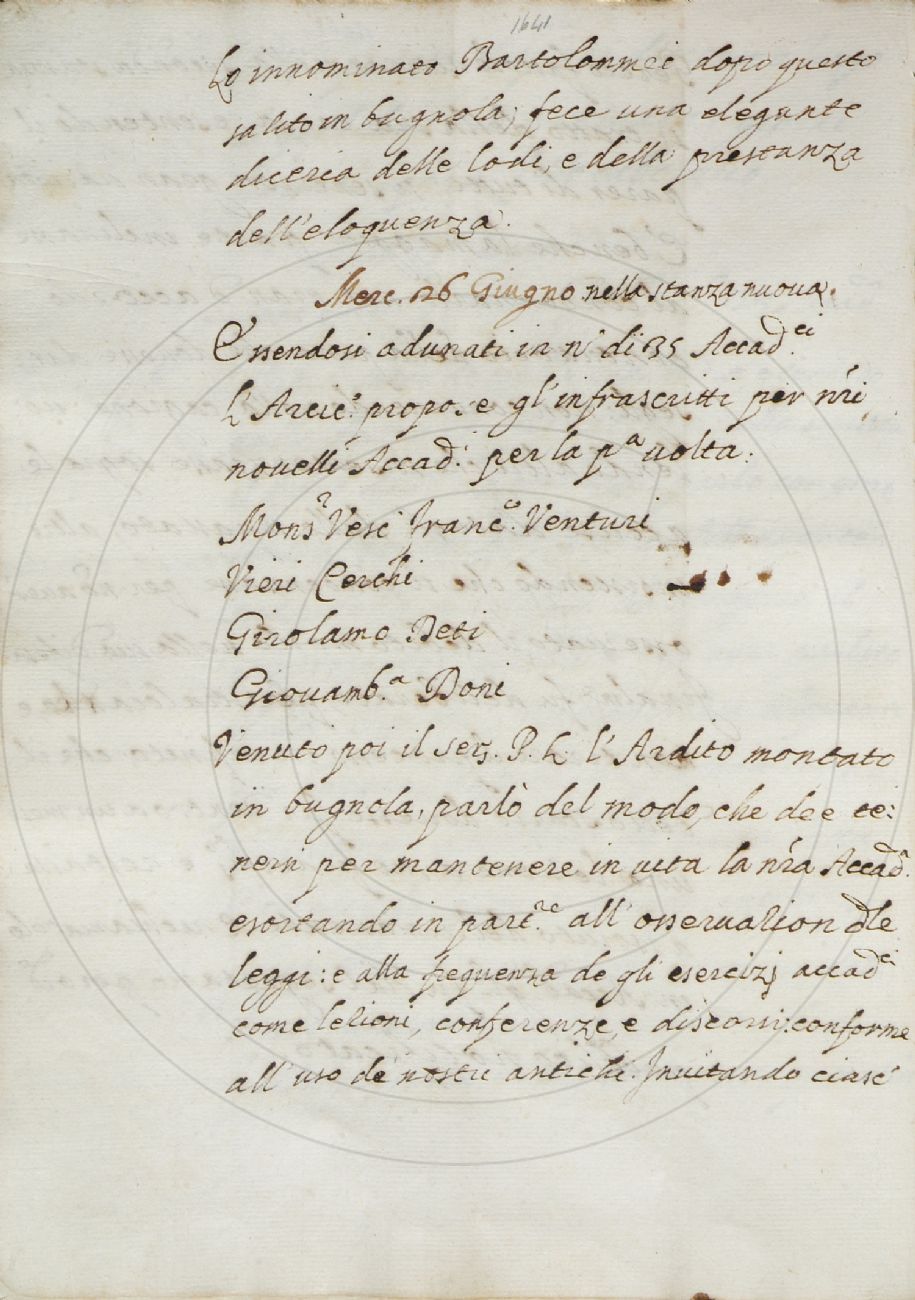 1641
Lo innominato Bartolommei dopo questo
salito in bugnola; fece una elegante
diceria delle lodi, e della prestanza
dell'eloquenza.
Merc. 26 Giugno nella stanza nuova.
Essendosi adunati in n.º di 35 Accad.ci
L'Arcic.º propose gl'infrascritti per nr̃i
novelli Accad.i per la p.a volta.
Mons.r Vesc.º Franc.º Venturi
Vieri Cerchi
Girolamo Beti
Giovamb.a Doni
Venuto poi il Ser. P. L. l'Ardito montato
in bugnola, parlò del modo, che dee te:
nersi per mantenere in vita la nr̃a Accad.a
esortando in part.re all'osservazion dlle
leggi: e alla frequenza de gli esercizj accad.ci
come lezioni, conferenze, e discorsi: conforme
all'uso de nostri antichi. Invitando ciasc.º